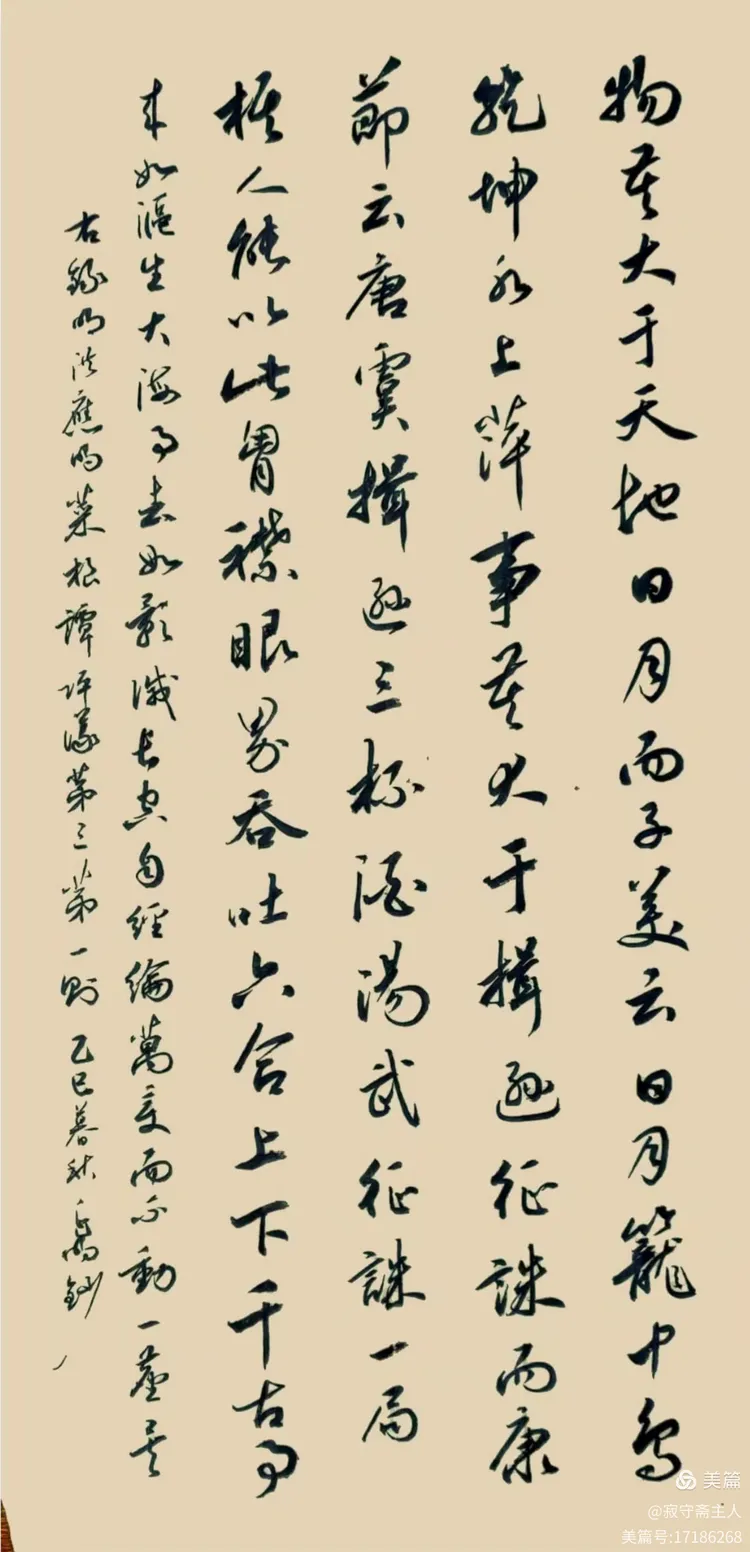 物莫大于天地日月而子美云日月籠中鳥
乾坤水上萍事莫大于揖遜征誅而康
節云唐虞揖遜三杯酒湯武征誅一局
棋人能以此胷襟眼界吞吐六合上下千古事
来如漚生大海事去如影滅長空自經綸萬变而不動一塵矣
右錄明洪應明菜根譚评議第三第一則 乙巳暮秋 鈔
美篇
@寂守斋主人
美篇号:17186268